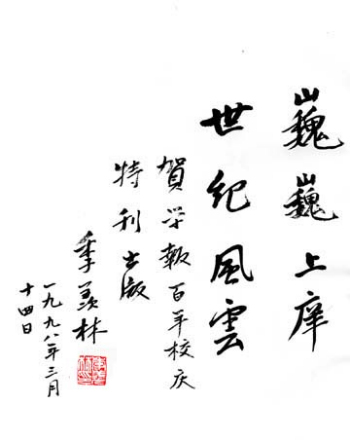 巍巍上庠
世紀風雲
賀学報百年校庆
特刊出版
季羡林
一九九八年三月
十四日